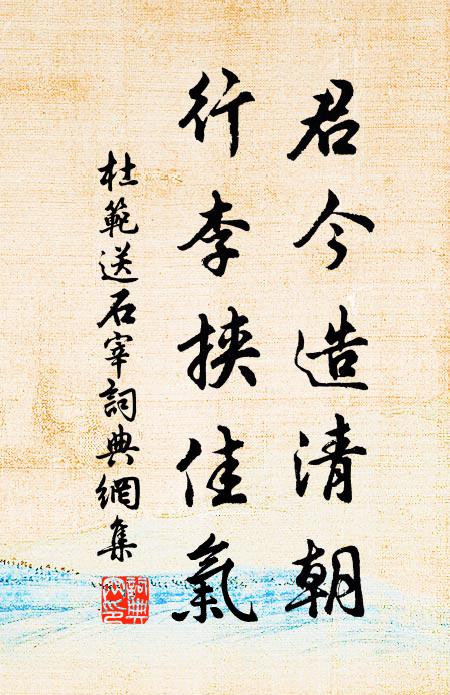 君今造清朝
行李挾佳氣
杜範送石宰詞典網集